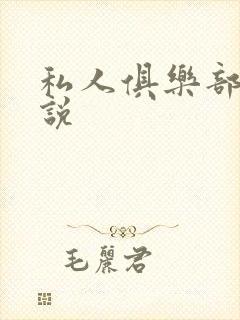 私人俱樂部
說
毛麗君